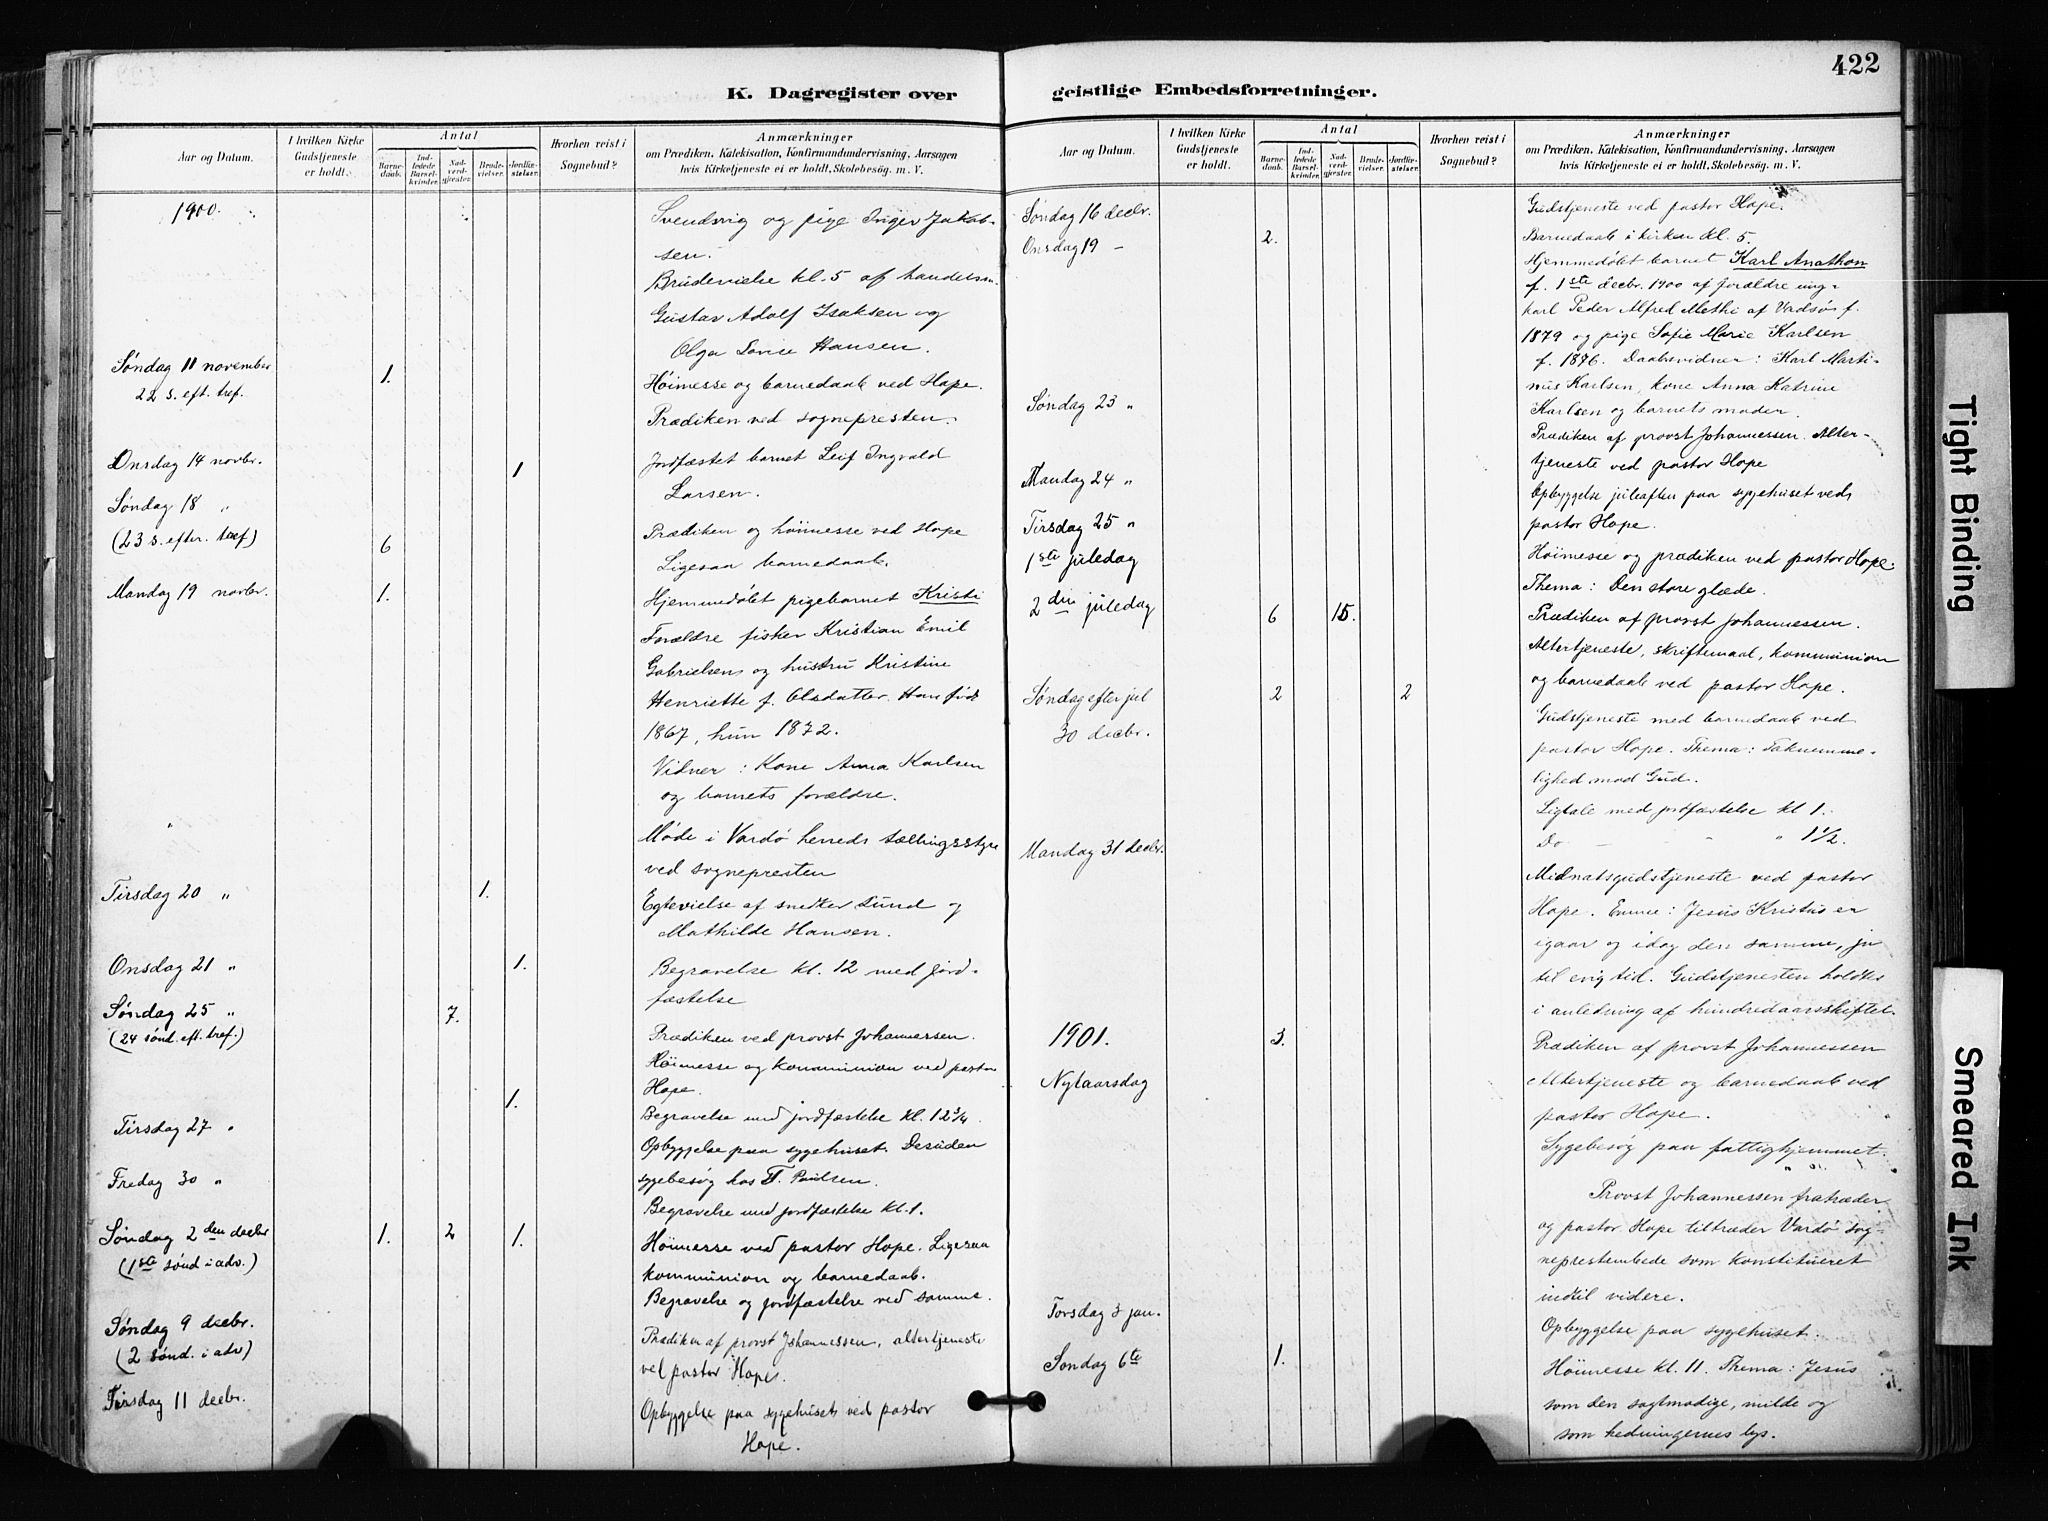 422
K. Dagregister over
geistlige Embedsforretninger.
Aar og Datum.
I hvilken Kirke
Gudstjeneste
er holdt.
Antal
Barne-
daab.
Ind-
ledede
Barsel-
kvinder.
Nad-
verd-
gjester.
Brude-
vielser.
Jordfæ-
stelser.
Hvorhen reist i
Sognebud?
Anmærkninger
om Prædiken, Katekisation, Konfirmandundervisning, Aarsagen
hvis Kirketjeneste ei er holdt, Skolebesøg. m. V.
1900.
Svendsvig og pige Inger Jakob-
sen.
Brudevielse kl. 5 af handelsm.
Gustav Adolf Isaksen og
Olga Lovise Hansen.
Søndag 11 november
22 s. eft. tref.
1.
Høimesse og barnedaab ved Hope.
Prædiken ved sognepresten.
Onsdag 14 novbr.
1
Jordfæstet barnet Leif Ingvald
Larsen.
Søndag 18 "
(23 s. efter. tref)
6
Prædiken og høimesse ved Hope
Ligesaa barnedaab.
Mandag 19 novbr.
1.
Hjemmedøbt pigebarnet Kristi
Forældre fisker Kristian Emil
Gabrielsen og hustru Kristine
Henriette f. Olsdatter. Han født
1867, hun 1872.
Vidner: Kone Anna Karlsen
og barnets forældre.
"
Møde i Vardø herreds tællingsstyre
ved sognepresten
Tirsdag 20 "
1.
Egtevielse af snedker Lund og
Mathilde Hansen.
Onsdag 21 "
1.
Begravelse kl. 12 med jord-
fæstelse
Søndag 25 "
(24 sønd. eft. tref.)
7.
Prædiken ved provst Johannessen.
Høimesse og kommunion ved pastor
Hope.
1.
Begravelse med jordfæstelse kl. 12 3/4.
Tirsdag 27 "
Opbyggelse paa sygehuset. Desuden
sygebesøg hos T. Paulsen.
Fredag 30 "
Begravelse med jordfæstelse kl. 1.
Søndag 2den decbr
(1ste sønd i adv.)
1. 2 1.
Høimesse ved pastor Hope. Ligesaa
kommunion og barnedaab.
Begravelse og jordfæstelse ved samme.
Søndag 9 decbr.
(2 sønd. i adv)
Prædiken af provst Johannessen, altertjeneste
ved pastor Hope.
Tirsdag 11 decbr.
Opbyggelse paa sygehuset ved pastor
Hope.
Aar og Datum.
I hvilken Kirke
Gudstjeneste
er holdt.
Antal
Barne-
daab.
Ind-
ledede
Barsel-
kvinder.
Nad-
verd-
gjester.
Brude-
vielser.
Jordfæ-
stelser.
Hvorhen reist i
Sognebud?
Anmærkninger
om Prædiken, Katekisation, Konfirmandundervisning, Aarsagen
hvis Kirketjeneste ei er holdt, Skolebesøg. m. V.
Søndag 16 decbr.
Gudstjeneste ved pastor Hope.
Onsdag 19 –
2.
Barnedaab i kirken kl. 5.
Hjemmedøbt barnet Karl Anathon
f. 1ste decbr. 1900 af forældre ung-
karl Peder Alfred Methi af Vadsø f.
1879 og pige Sofie Marie Karlsen
f. 1876. Daabsvidner: Karl Marti-
nus Karlsen, kone Anna Katrine
Karlsen og barnets moder.
Søndag 23 "
Prædiken af provst Johannessen. Alter-
tjeneste ved pastor Hope
Mandag 24 "
Opbyggelse juleaften paa sygehuset ved
pastor Hope.
Tirsdag 25 "
1ste juledag
Høimesse og prædiken ved pastor Hope.
Thema: Den store glæde.
2den juledag
6 15.
Prædiken af provst Johannessen.
Altertjeneste, skriftemaal, kommunion
og barnedaab ved pastor Hope.
Søndag efter jul
30 decbr.
2 2
Gudstjeneste med barnedaab ved
pastor Hope. Thema: Taknemme-
lighed mod Gud.
Ligtale med jordfæstelse kl 1.
Do – - " 1 1/2.
Mandag 31 decbr.
Midnatsgudstjeneste ved pastor
Hope. Emne: Jesus Kristus er
igaar og idag den samme, ja
til evig tid. Gudstjenesten holdtes
i anledning af hundredaarsskiftet.
1901.
3.
Nytaarsdag
Prædiken af provst Johannessen
Altertjeneste og barnedaab ved
pastor Hope.
Sygebesøg paa fattighjemmet.
Provst Johannessen fratræder
og pastor Hope tiltræder Vardø sog-
neprestembede som konstitueret
indtil videre.
Torsdag 3 jan.
Opbyggelse paa sygehuset.
Søndag 6te
1.
Høimesse kl. 11. Thema: Jesus
som den sagtmodige, milde og
som hedningernes lys.
Tight Binding
Smeared Ink